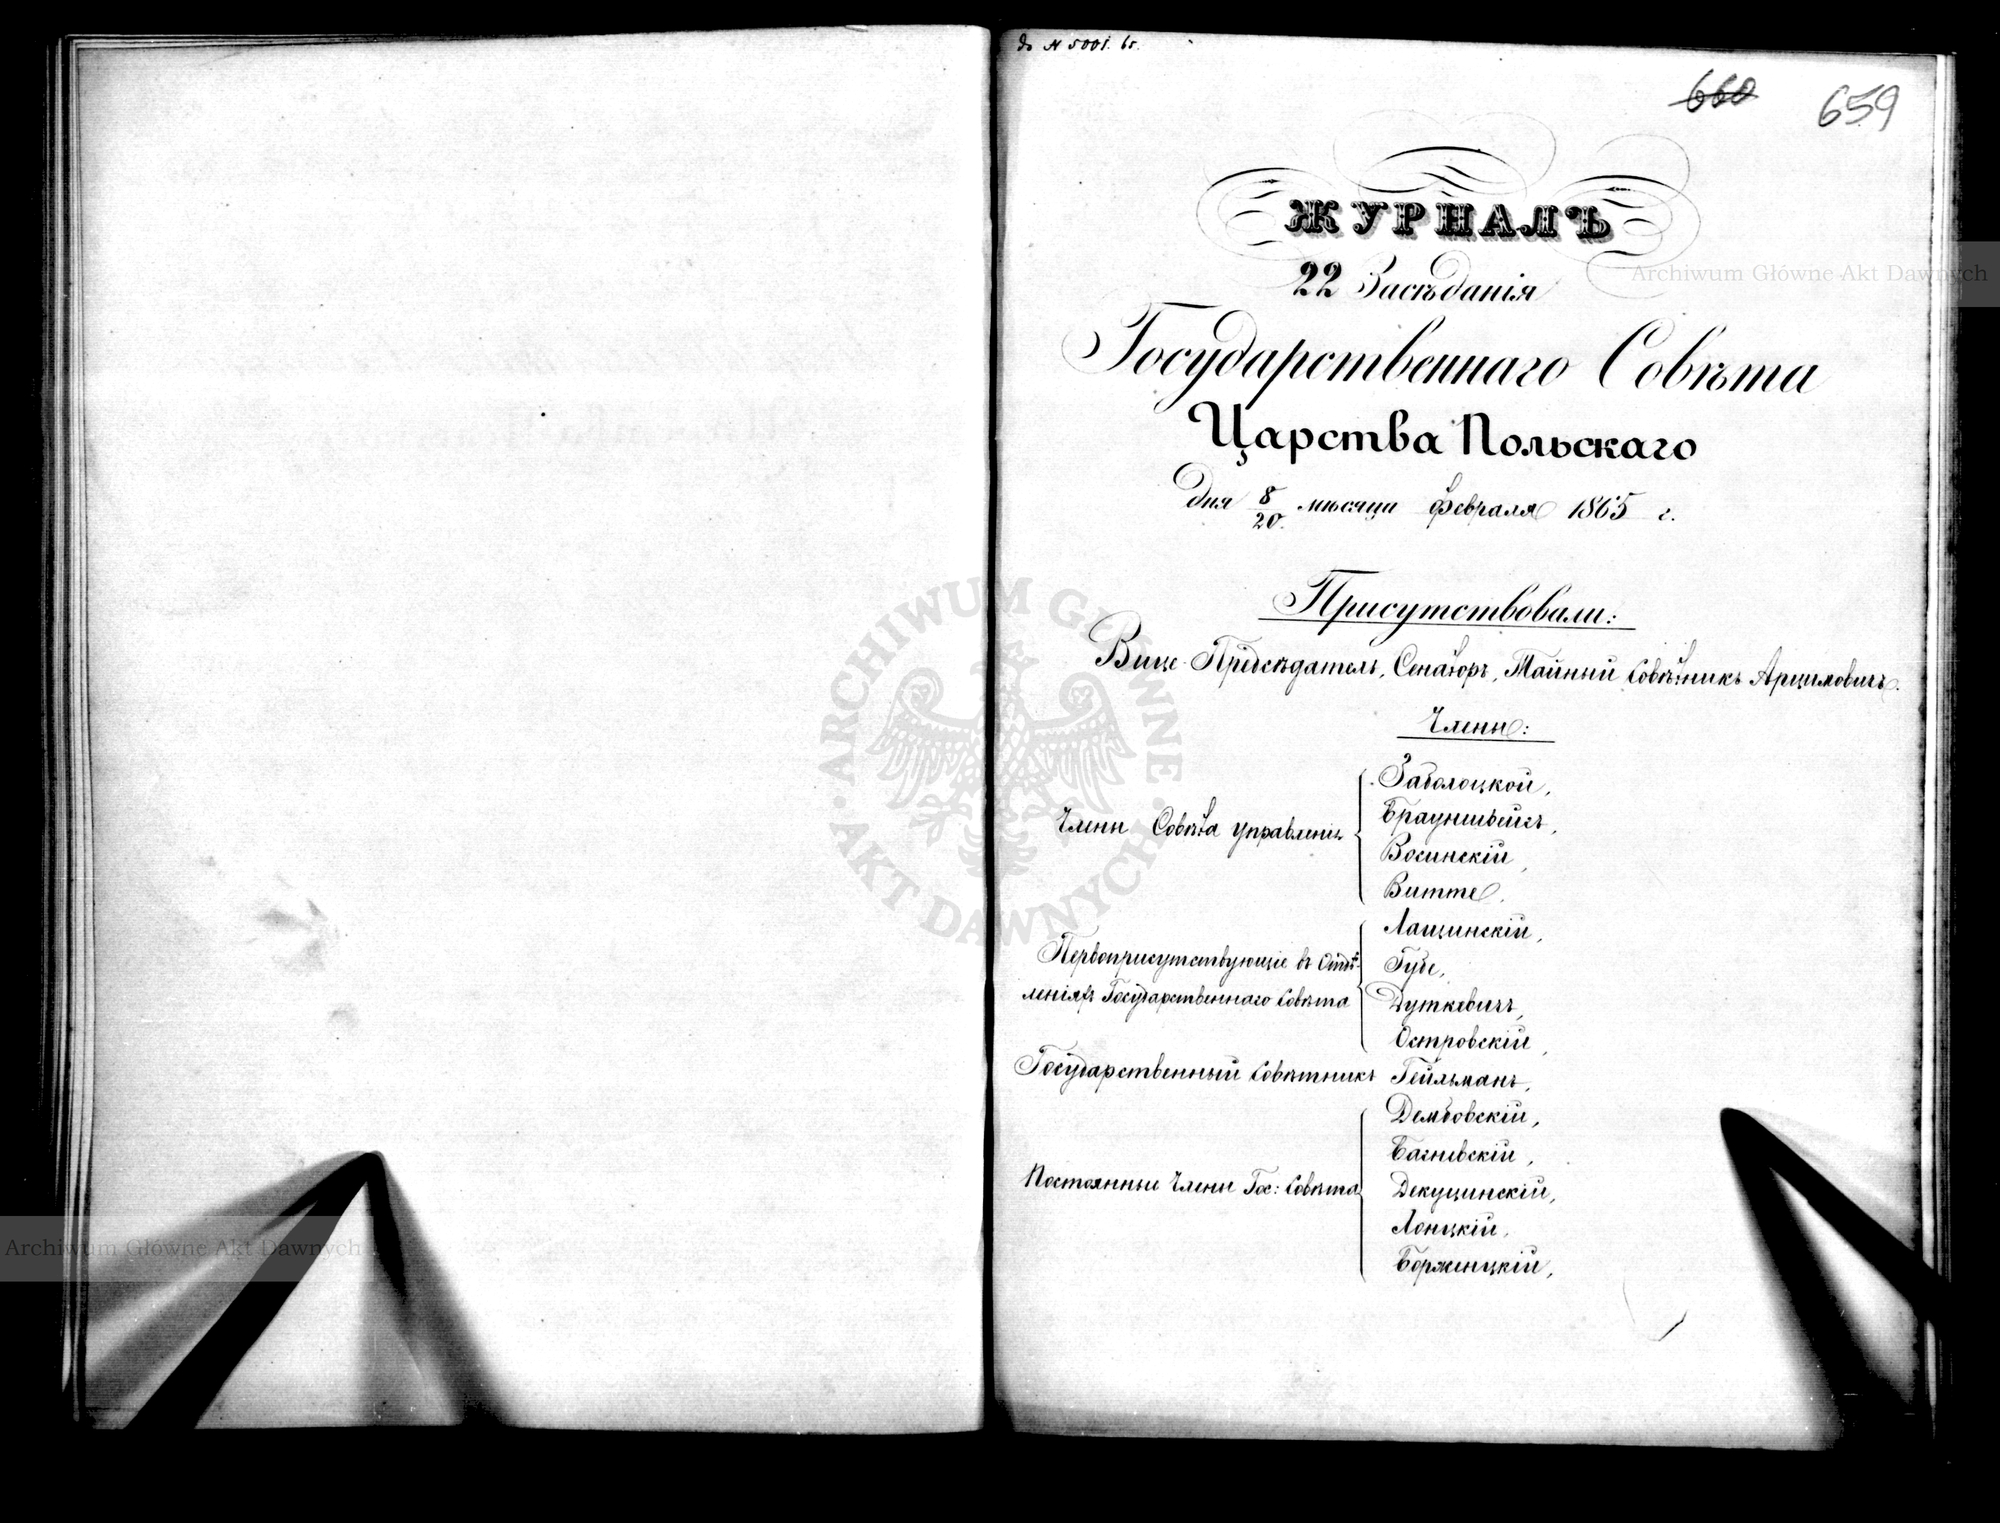 до N 5001. 65.
660 659
ЖУРНАЛЪ
22 Засѣданія
Государственнаго Совѣта
Царства Польскаго
Дня 8/20 мѣсяца февраля 1865 г.
Присутствовали:
Вице-Предсѣдатель, Сенаторъ, Тайный Совѣтникъ Арцимовичъ.
Члены:
Члены Совѣта управленія
Заболоцкой,
Брауншвейгъ,
Восинскій,
Витте,
Первоприсутствующіе въ Отдѣ-
леніяхъ Государственнаго Совѣта
Лащинскій,
Губе,
Дуткевичъ,
Островскій,
Государственный Совѣтникъ Гейльманъ,
Постоянные Члены Гос: Совѣта
Дембовскій,
Багневскій,
Декуцинскій,
Лонцкій,
Борженцкій,
Archiwum Główne Akt Dawnych
Archiwum Główne Akt Dawnych
ARCHIWUM GŁÓWNE AKT DAWNYCH